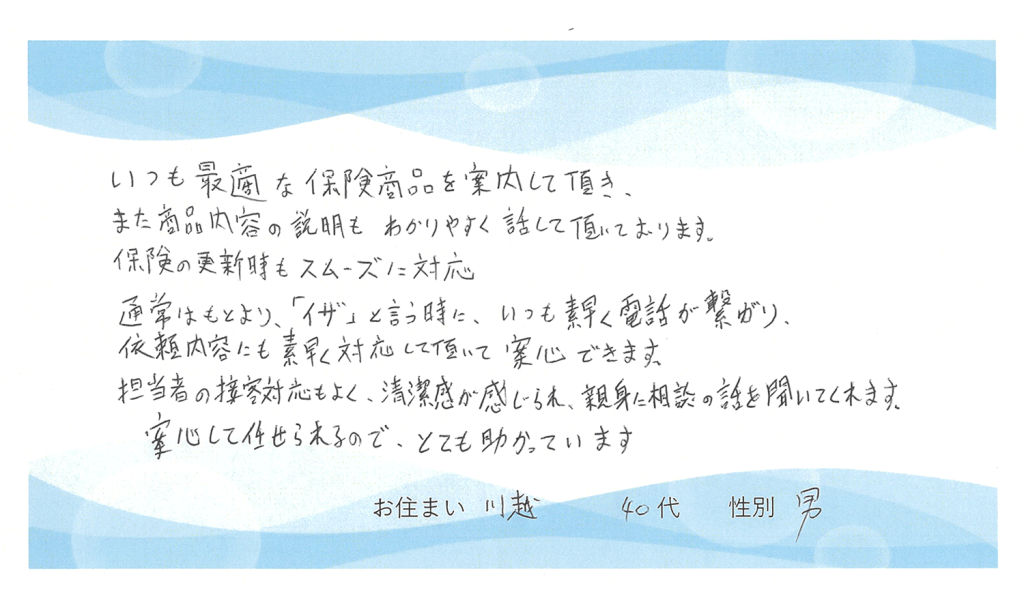 いつも最適な保険商品を案内して頂き、
また商品内容の説明も わかりやすく話して頂いております。
保険の更新時もスムーズに対応
通常はもとより、「イザ」と言う時に、いつも素早く電話が繋がり、
依頼内容にも素早く対応して頂いて案心できます。
担当者の接客対応もよく、清潔感が感じられ、親身に相談の話を聞いてくれます。
案心して任せられるので、とても助かっています
お住まい 川越 40代 性別 男